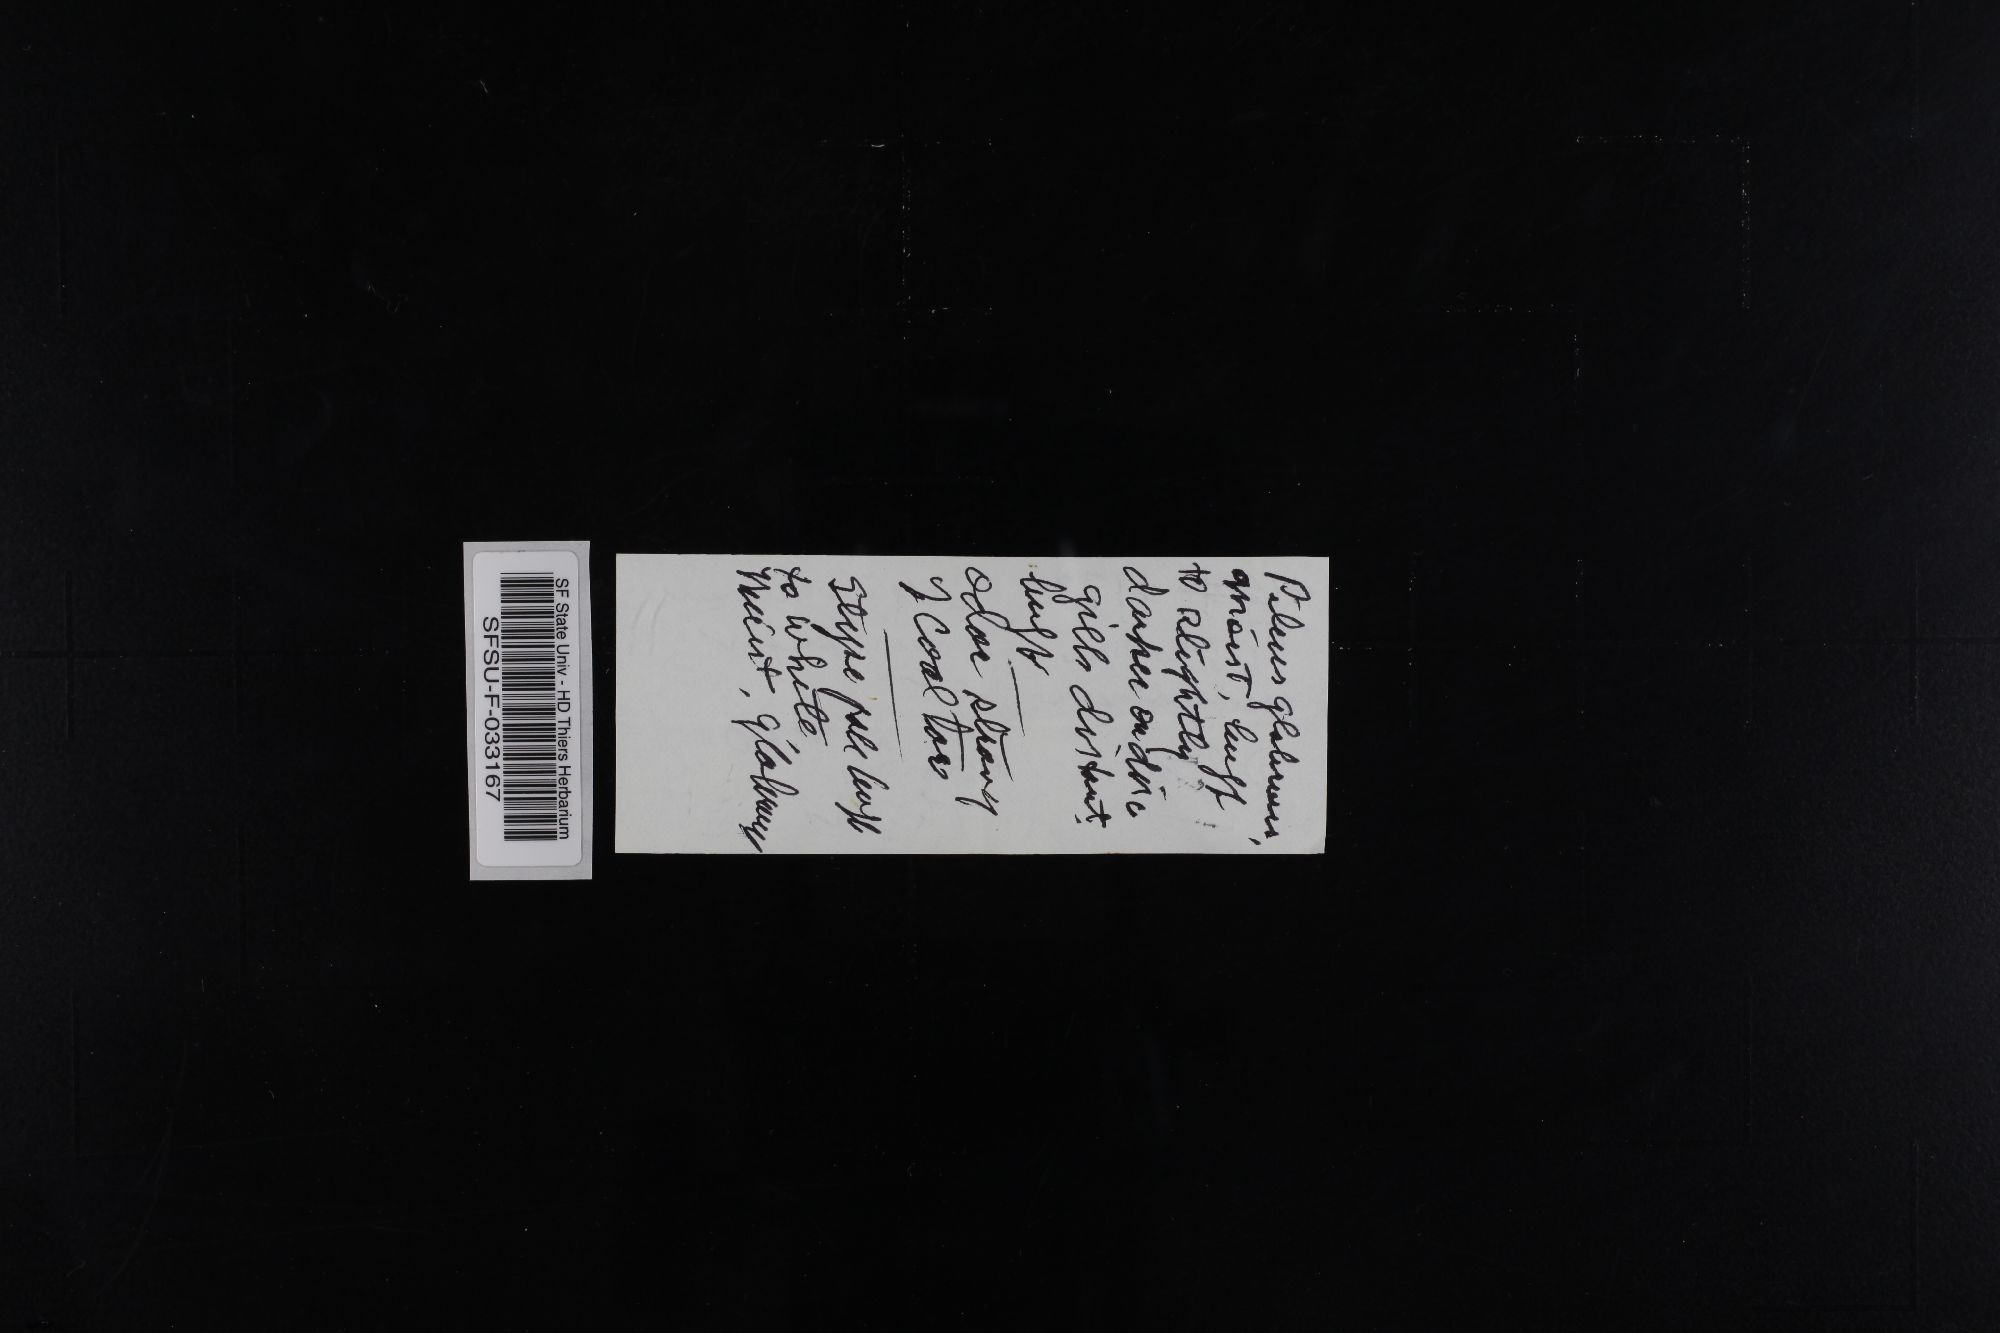 Pileus glabrous,
moist, buff
to slightly
darker on disc
gills distant.
buff
odor strong
of Coal tar
Stipe pale buff
to white
moist, glabrous
SF State Univ - HD Thiers Herbarium
SFSU-F-033167